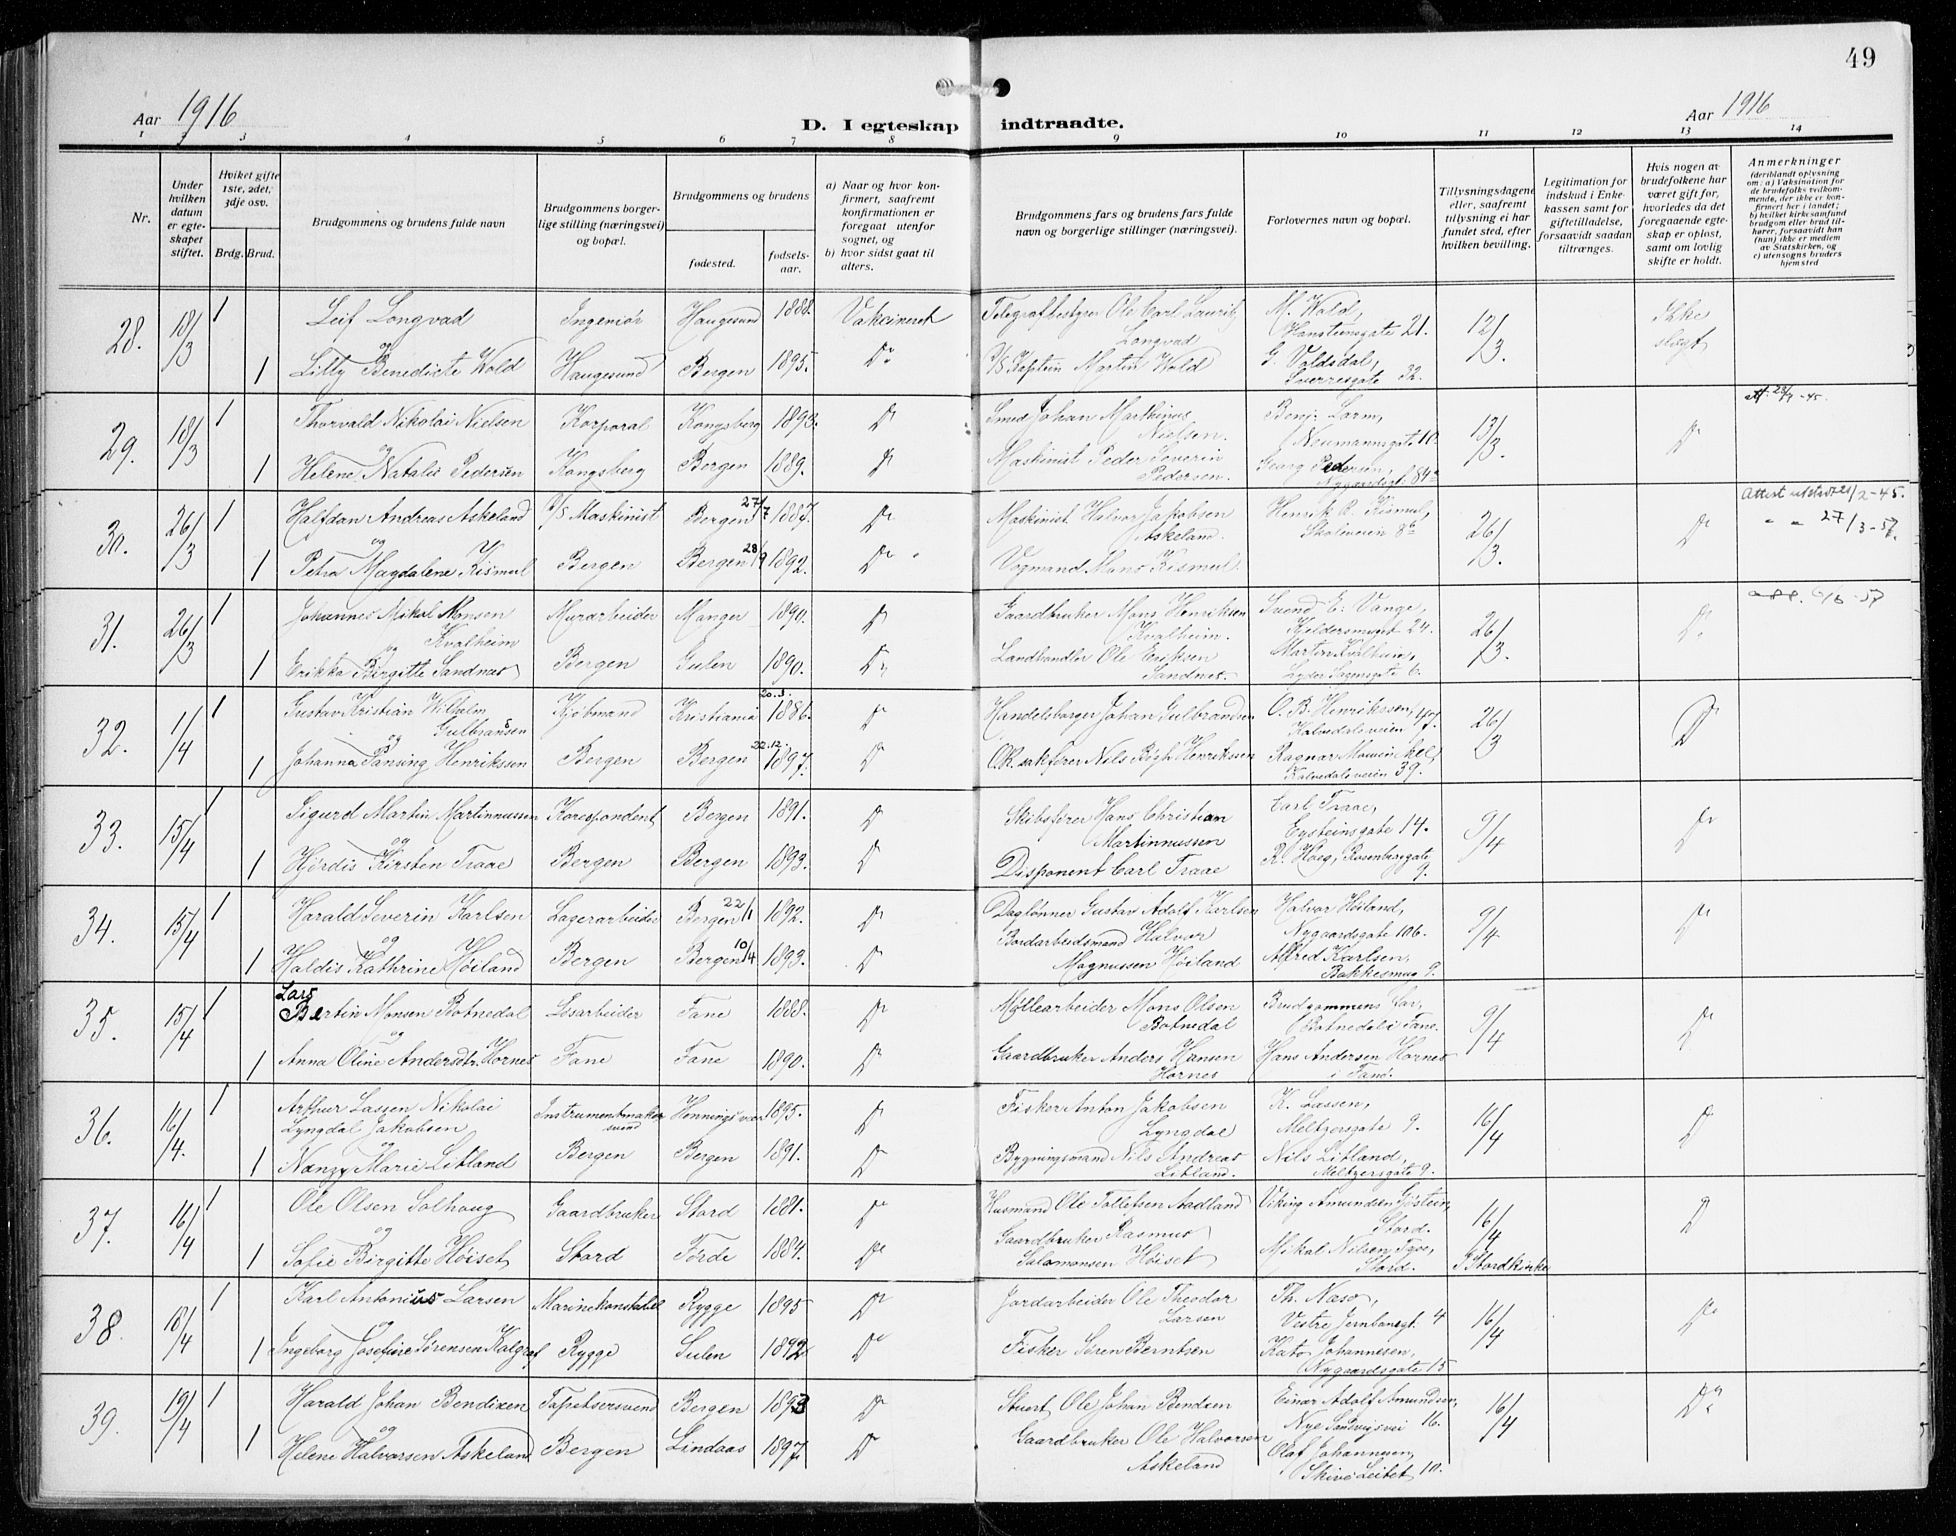 49
Aar 1916
D. I egteskap indtraadte.
Aar 1916
1 2 3 4 5 6 7 8 9 10 11 12 13 14
Nr.
Under hvilken datum er egteskapet stiftet.
Hvilket gifte 1ste, 2det, 3dje osv.
Brdg. Brud.
Brudgommens og brudens fulde navn
Brudgommens borgerlige stilling (næringsvei) og bopæl.
Brudgommens og brudens
fødested.
fødselsaar.
a) Naar og hvor konfirmert, saafremt konfirmationen er foregaat utenfor sognet, og
b) hvor sidst gaat til alters.
Brudgommens fars og brudens fars fulde navn og borgerlige stillinger (næringsvei).
Forlovernes navn og bopæl.
Tillysningsdagene eller, saafremt tillysning ei har fundet sted, efter hvilken bevilling.
Legitimation for indskud i Enkekassen samt for giftetilladelse, forsaavidt saadan tiltrænges.
Hvis nogen av brudefolkene har været gift før, hvorledes da det foregaaende egteskap er opløst, samt om lovlig skifte er holdt.
Anmerkninger (deriblandt oplysning om: a) Vaksination for de brudefolks vedkommende, der ikke er konfirmert her i landet; b) hvilket kirkesamfund brudgom eller brud tilhører, forsaavidt han (hun) ikke er medlem av Statskirken, og c) utensogns bruders hjemsted
28. 18/3 1 Leif Longvad Ingeniör Haugesund 1888. Vakcineret Telegrafbestyrer Ole Carl Lauritz Longvad M. Wold, Hansteensgate 21. 12/3. Ikke slegt
og
1 Lilly Benedicte Wold Haugesund Bergen 1895. Do D/S Kaptein Martin Wold G. Valdsdal, Sverresgate 32.
29. 18/3 1 Thorvald Nikolai Nielsen Korporal Kongsberg 1893. Do Smed Johan Martinus Nielsen. Benj. Lorm, Neumannsgate 10. 13/3. Do
og
1 Helene Natalie Pedersen Kongsberg Bergen 1889. Do Maskinist Peder Severin Pedersen. Georg Pedersen, Nygaardsgt. 84a
30. 26/3 1 Halfdan Andreas Askeland D/S Maskinist Bergen 27/7 1887. Do Maskinist Halvor Jakobsen Askeland. Henrik R. Kismul, Skoleveien 8b 26/3. Do Attest utstedt 21/2-45.
" " 27/3-57.
og
1 Petra Magdalene Kismul Bergen Bergen 28/9 1892. Do Vogmand Mons Kismul.
31. 26/3 1 Johannes Mikal Monsen Kvalheim Murarbeider Manger 1890. Do Gaardbruker Mons Henriksen Kvalheim. Svend E. Vange, Keldersmuget 24. 26/3. Do
og
1 Erikka Birgitte Sandnes Bergen Gulen 1890. Do Landhandler Ole Eriksen Sandnes. Martin Kvalheim, Lyder Sagensgate 6.
32. 1/4 1 Gustav Kristian Wilhelm Gulbransen Kjöbmand Kristiania 20.3. 1886. Do Handelsborger Johan Gulbrandsen O. B. Henrikssen, Kalvedalsveien 47. 26/3 Do
og
1 Johanna Pansing Henrikssen Bergen Bergen 22.12. 1897. Do O.R.sakfører Nils Bögh Henrikssen Ragnar Mowinckel, Kalvedalsveien 39.
33. 15/4 1 Sigurd Martin Martinnussen Korespondent Bergen 1891. Do Skibsfører Hans Christian Martinnussen Carl Traae, Eysteinsgate 14. 9/4 Do
og
1 Hjördis Kirsten Traae Bergen Bergen 1893. Do Disponent Carl Traae R. Høeg, Rosenbergsgate 9.
34. 15/4 1 Harald Severin Karlsen Lagerarbeider Bergen 22/1 1892. Do Daglønner Gustav Adolf Karlsen Halvor Höiland, Nygaardsgate 106. 9/4 Do
og
1 Haldis Kathrine Höiland Bergen Bergen 10/4 1893. Do Bordarbeidsmand Halvor Magnussen Höiland Alfred Karlsen, Bakkesmug 9.
35. 15/4 1 Lars Bertin Monsen Botnedal Løsarbeider Fane 1888. Do Møllearbeider Mons Olsen Botnedal Brudgommens Far, Botnedal i Fane. 9/4 Do
og
1 Anna Oline Andersdtr. Hornes Fane Fane 1890. Do Gaardbruker Anders Hansen Hornes Hans Andersen Hornes i Fane.
36. 16/4. 1 Arthur Lassen Nikolai Lyngdal Jakobsen Instrumentmakersvend Henningsvær 1895. Do Fisker Anton Jakobsen Lyngdal K. Lassen, Meltzersgate 9. 16/4 Do
og
1 Nanzy Marie Litland Bergen Bergen 1891. Do Bygningsmand Nils Andreas Litland. Nils Litland, Meltzersgate 9.
37. 16/4 1 Ole Olsen Solhaug Gaardbruker Stord 1881. Do Husmand Ole Tollefsen Aadland Viking Amundsen Gjöstein, Stord. 16/4 Do
og
1 Sofie Birgitte Höiset Stord Förde 1884. Do Gaardbruker Rasmus Salomonsen Höiset Mikal Nilsen Tyse, Stord. I Stordkirke
38. 18/4 1 Karl Antonius Larsen Marinekonstabel Rygge 1895 Do Jordarbeider Ole Theodor Larsen Th. Næsø, Vestre Jernbanegt. 4 16/4 Do
og
1 Ingeborg Josefine Sørensen Kalgraf Rygge Sulen 1892 Do Fisker Søren Berntsen Kato Johannesen, Nygaardsgate 15
39. 19/4 1 Harald Johan Bendixen Tapetsersvend Bergen 1893 Do Stuert Ole Johan Bendxen Einar Adolf Amundsen, Nye Sandviksvei 16. 16/4 Do
og
1 Helene Halvorsen Askeland Bergen Lindaas 1897. Do Gaardbruker Ole Halvorsen Askeland Olaf Johannesen, Skiveleitet 10.